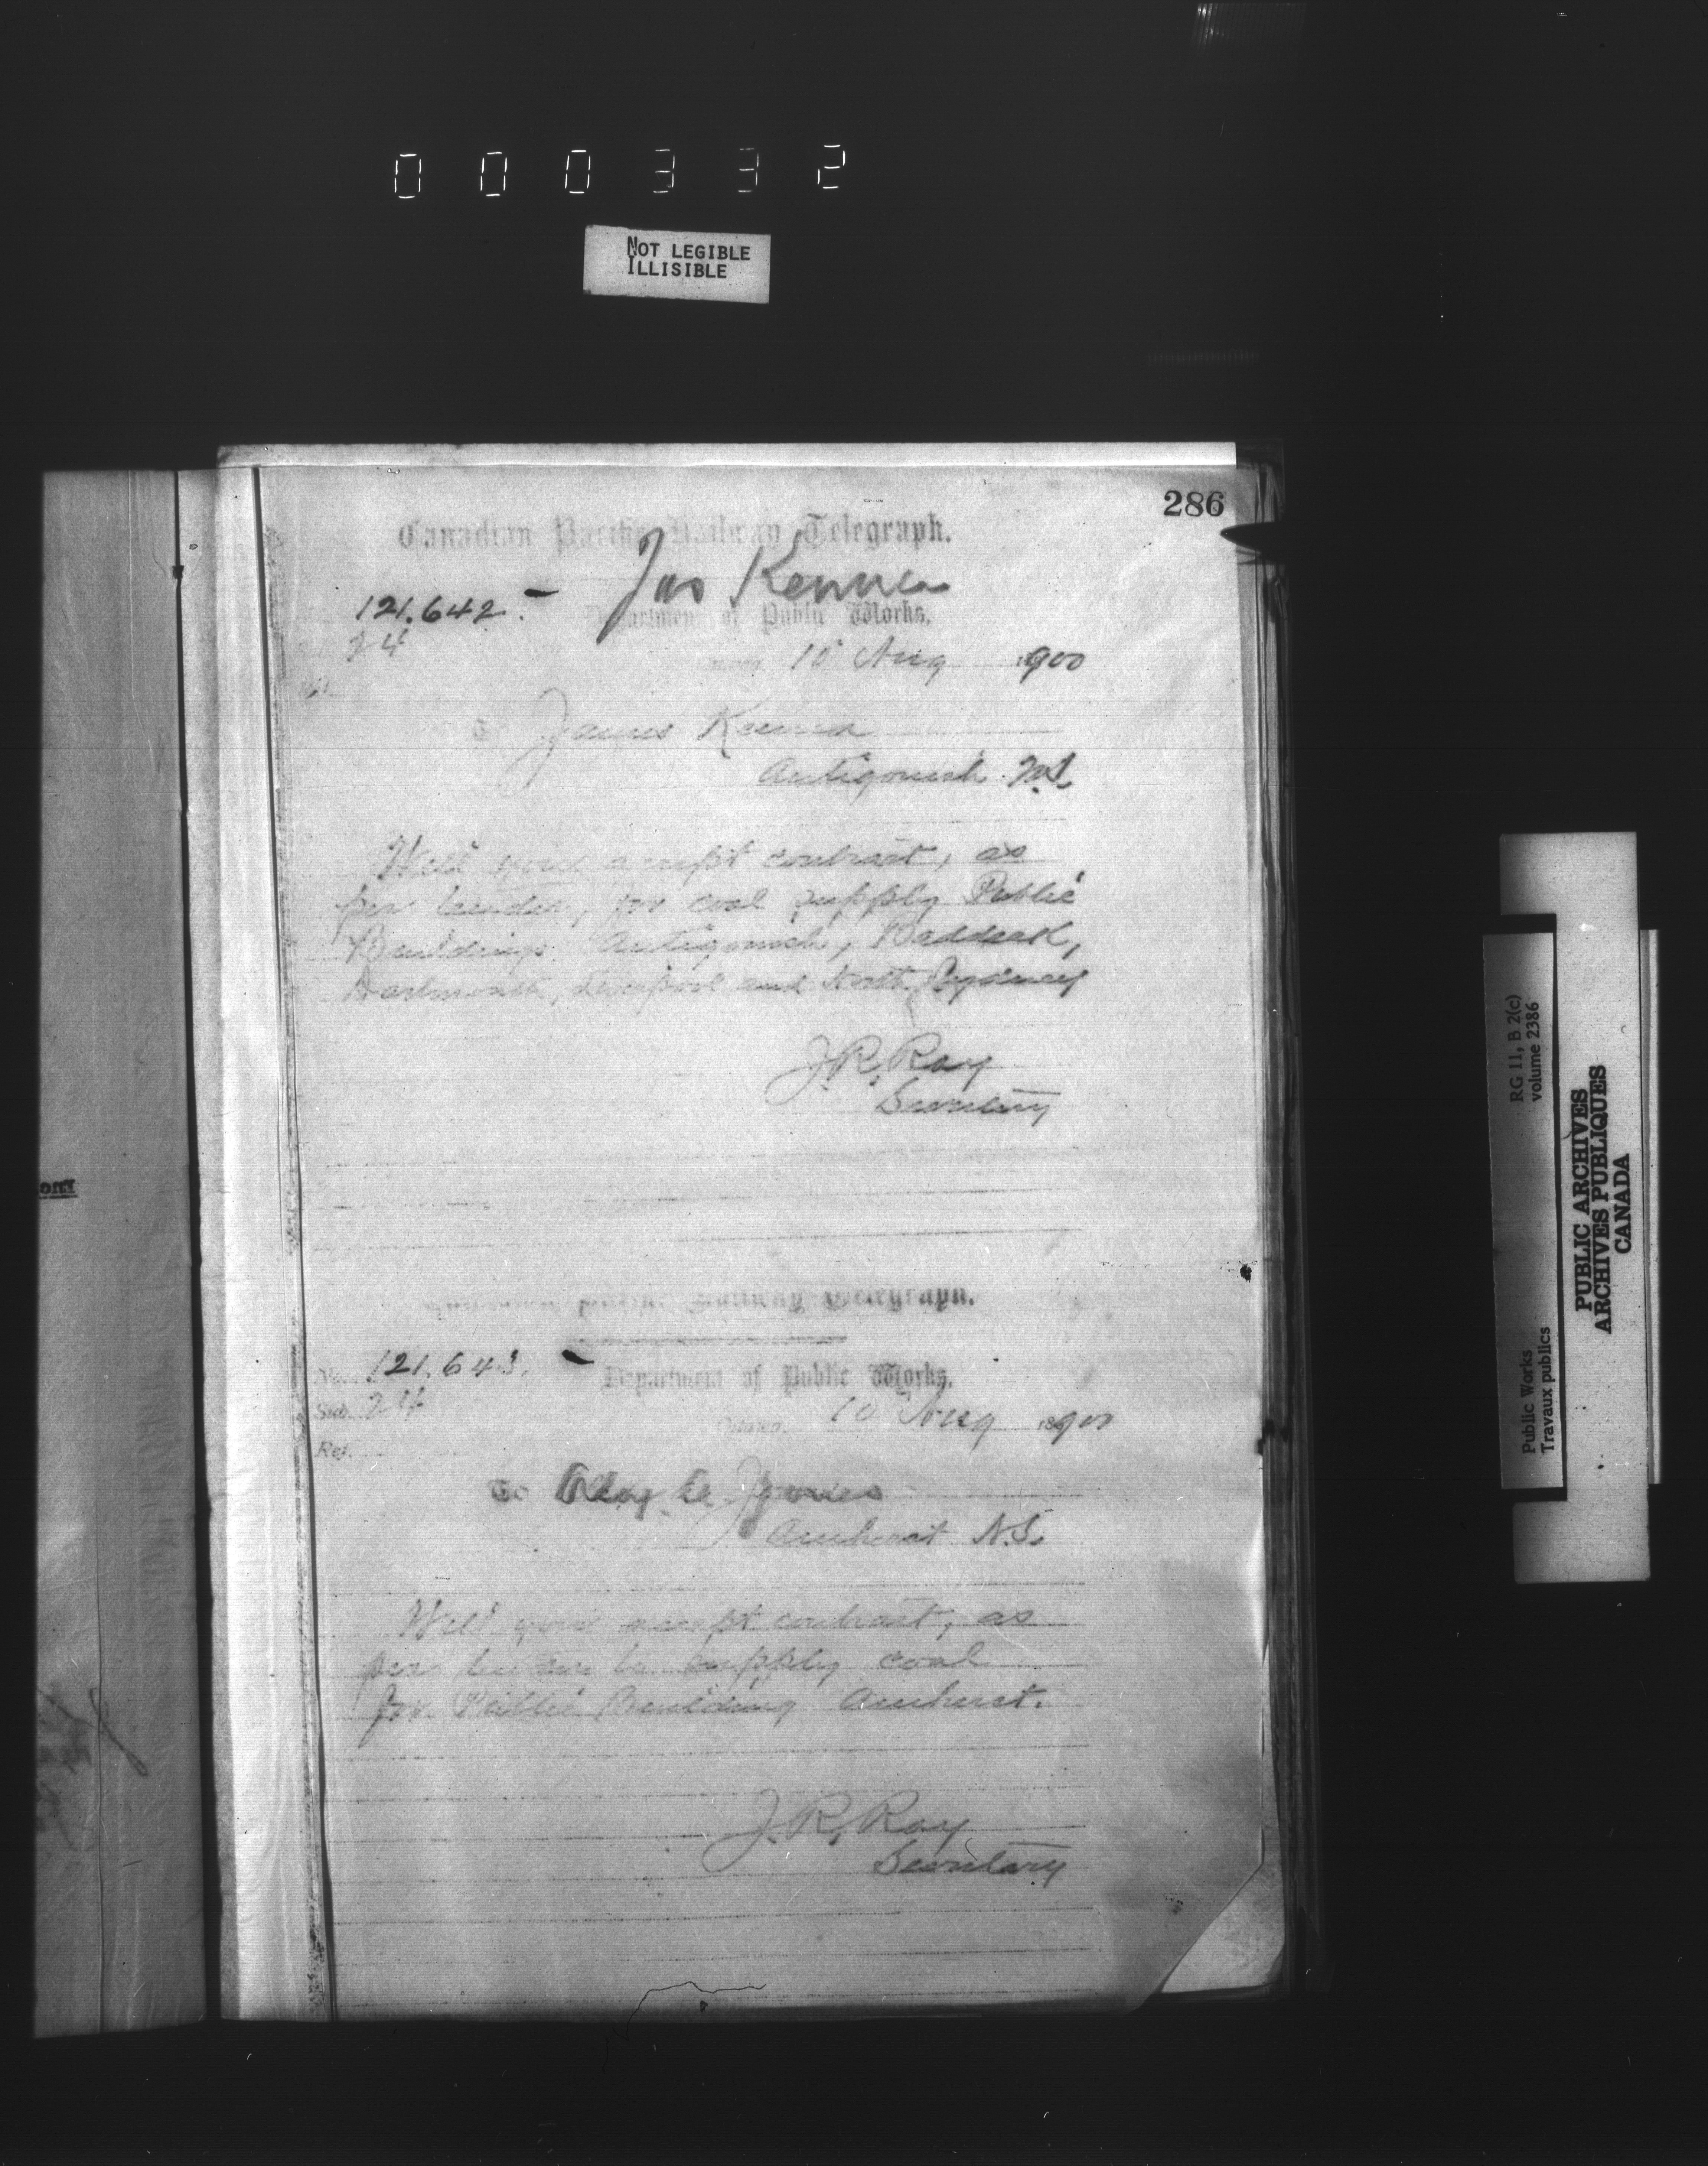 000332
NOT LEGIBLE
ILLISIBLE
286
Canadian Pacific Railway Telegraph.
Jas Kenna
121.642.
Department of Public Works,
24
10 Aug 1900
To James Kenna
Antigonish N.S.
Will you accept contract, as
per tender, for coal supply Public
Buildings Antigonish, Baddeck,
Dartmouth, Liverpool and North Sydney
J.R. Ray
Secretary
Canadian Pacific Railway Telegraph.
No. 121.643.
Department of Public Works,
Sub. 24
Ottawa, 10 Aug 1900
Ref.
To
Jones
Amherst N.S.
Will you accept contract, as
per tender to supply coal
for Public Building Amherst.
J.R. Ray
Secretary
RG 11, B 2(c)
volume 2386
Public Works
Travaux publics
PUBLIC ARCHIVES
ARCHIVES PUBLIQUES
CANADA